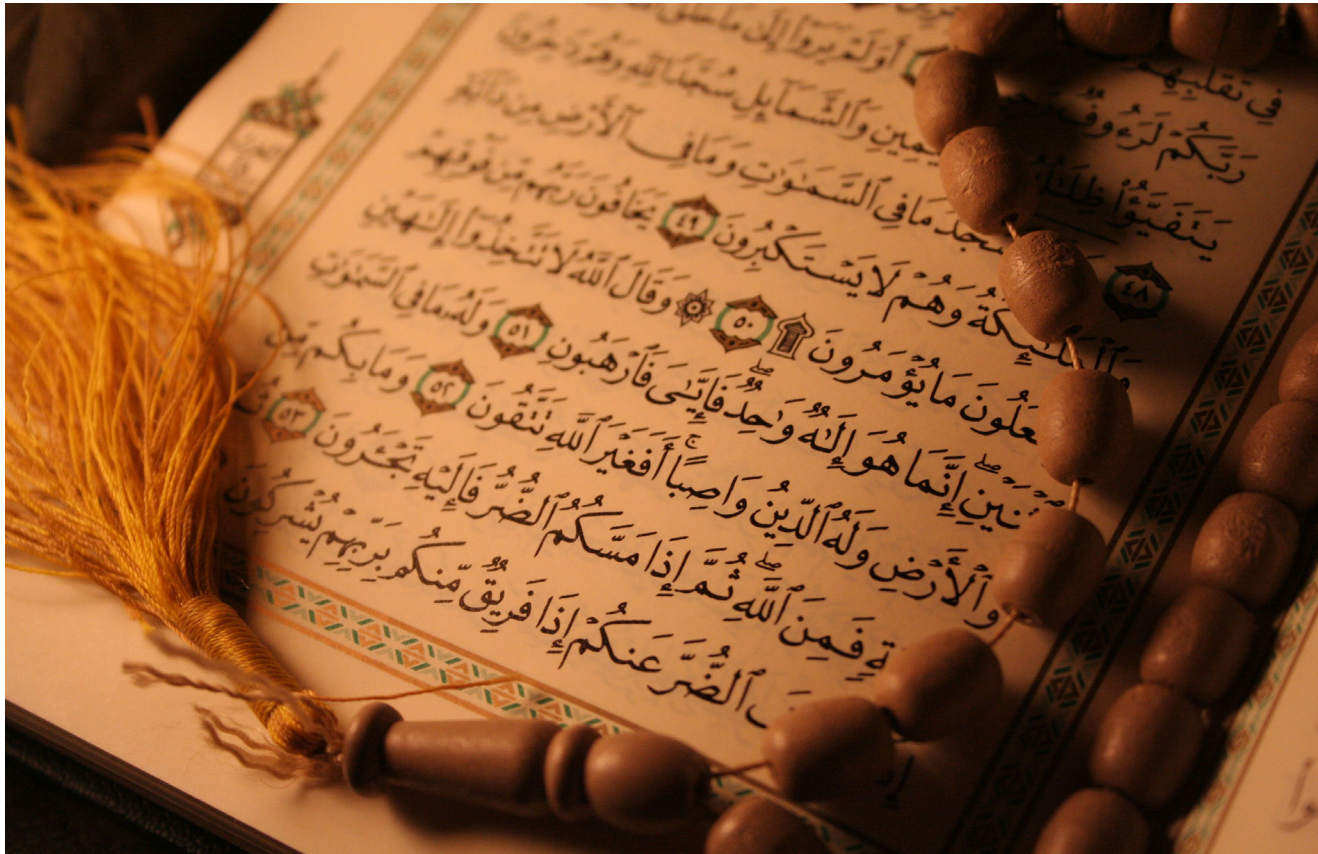 فِى تَقَلُّبِهِمْ
رَبَّكُمْ لَرَءُوفٌ أَوَلَمْ يَرَوْا۟ إِلَىٰ مَا خَلَقَ
يَتَفَيَّؤُا۟ ظِلَـٰلُهُۥ ٱلْيَمِينِ وَٱلشَّمَآئِلِ سُجَّدًا لِّلَّهِ وَهُمْ دَٰخِرُونَ
٤٨ يَسْجُدُ مَا فِى ٱلسَّمَـٰوَٰتِ وَمَا فِى ٱلْأَرْضِ مِن دَآبَّةٍ
وَٱلْمَلَـٰٓئِكَةُ وَهُمْ لَا يَسْتَكْبِرُونَ ٤٩ يَخَافُونَ رَبَّهُم مِّن فَوْقِهِمْ
وَيَفْعَلُونَ مَا يُؤْمَرُونَ ۩ ٥٠ ۞ وَقَالَ ٱللَّهُ لَا تَتَّخِذُوٓا۟ إِلَـٰهَيْنِ
ٱثْنَيْنِ ۖ إِنَّمَا هُوَ إِلَـٰهٌ وَٰحِدٌ ۖ فَإِيَّـٰىَ فَٱرْهَبُونِ ٥١ وَلَهُۥ مَا فِى ٱلسَّمَـٰوَٰتِ
وَٱلْأَرْضِ وَلَهُ ٱلدِّينُ وَاصِبًا ۚ أَفَغَيْرَ ٱللَّهِ تَتَّقُونَ ٥٢ وَمَا بِكُم مِّن
فَمِنَ ٱللَّهِ ۖ ثُمَّ إِذَا مَسَّكُمُ ٱلضُّرُّ فَإِلَيْهِ تَجْـَٔرُونَ ٥٣ ثُمَّ
ٱلضُّرَّ عَنكُمْ إِذَا فَرِيقٌ مِّنكُم بِرَبِّهِمْ يُشْرِكُونَ